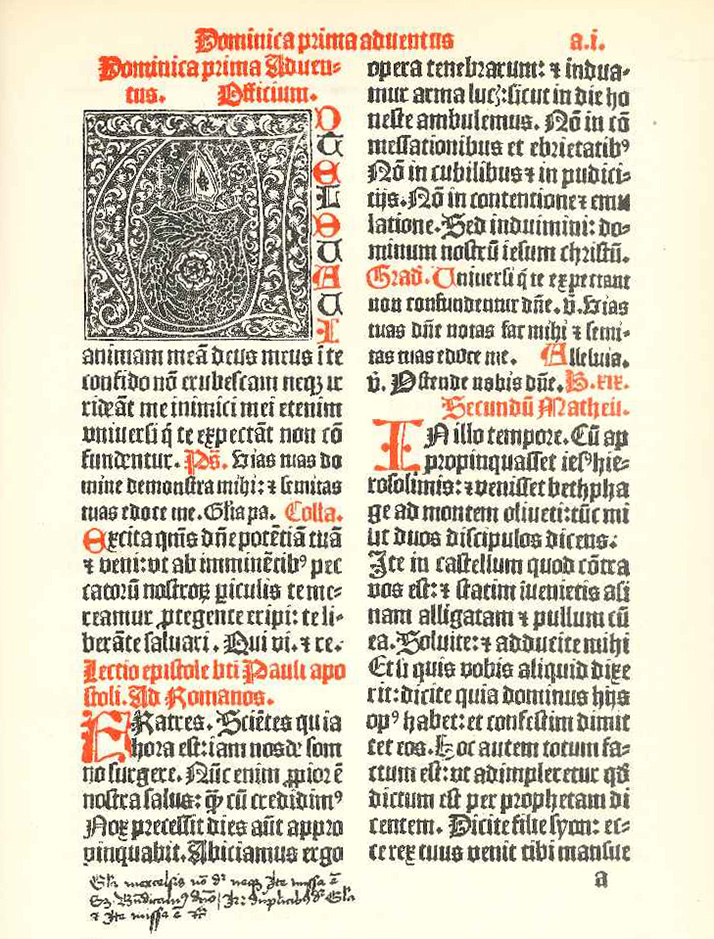 Dominica prima aduentus a.i.
Dominica prima Aduen-
tus. Officium.
A
D
TE
L
E
U
A
U
I
animam meã deus meus ĩ te
confido nõ erubescam neqꝫ ir
rideãt me inimici mei etenim
vniuersi q̃ te expectãt non cõ
fundentur. Ps̃. Uias tuas do
mine demonstra mihi: ⁊ semitas
tuas edoce me. Gl̃ia pa. Colla.
Excita q̃m̃s dñe potẽtiã tuã
⁊ veni: vt ab imminẽtibꝰ pec
catorũ nostroꝝ ꝑiculis te me-
reamur ꝓtegente eripi: te li-
berãte saluari. Qui vi. ⁊ re.
Lectio epistole bti Pauli apo
stoli. Ad Romanos.
FRatres. Sciẽtes quia
hora est: iam nos de som
no surgere. Nũc enim ꝓpior ẽ
nostra salus: q̃ꝫ cũ credidimꝰ
Nox precessit dies aũt appro
pinquabit. Abiciamus ergo
opera tenebrarum: ⁊ indua-
mur arma lucꝫ: sicut in die ho
neste ambulemus. Nõ in cõ
messationibus et ebrietatibꝰ
Nõ in cubilibus ⁊ in pudici-
tijs. Nõ in contentione ⁊ emu
latione. Sed induimini: do-
minum nostrũ iesum christũ.
Grad. Uniuersi q̃ te expectant
non confundentur dñe. v̄. Uias
tuas dñe notas fac mihi ⁊ semi-
tas tuas edoce me. Alleluia.
v̄. Ostende nobis dñe. B. xix.
Secundũ Matheũ.
IN illo tempore. Cũ ap
propinquasset iesꝰ hie-
rosolimis: ⁊ venisset bethpha
ge ad montem oliueti: tũc mi
sit duos discipulos dicens:
Ite in castellum quod cõtra
vos est: ⁊ statim ĩuenietis asi
nam alligatam ⁊ pullum cũ
ea. Soluite: ⁊ adducite mihi
Et si quis vobis aliquid dixe
rit: dicite quia dominus hijs
opꝰ habet: et confestim dimit
tet eos. Hoc autem totum fa-
ctum est: vt adimpleretur qđ
dictum est per prophetam di
centem. Dicite filie syon: ec-
ce rex tuus venit tibi mansue
a